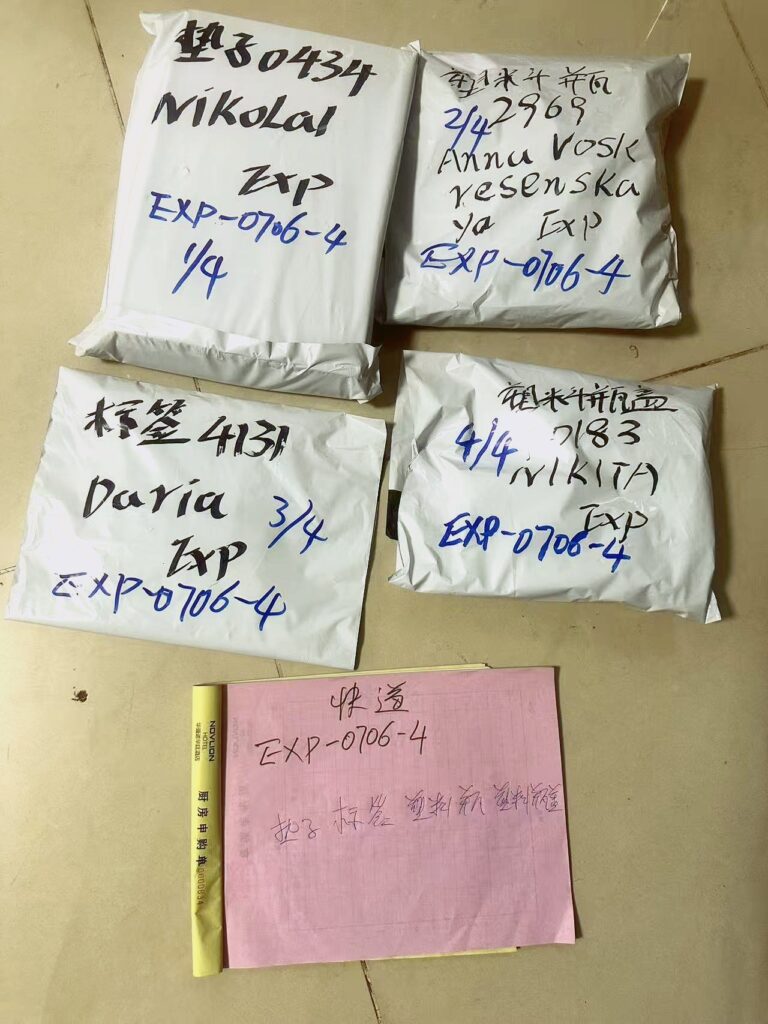 垫子0434
Nikolai
Exp
EXP-0706-4
1/4
塑料瓶
2/4 2969
Anna Vosk
resenska
ya Exp
EXP-0706-4
标签 4131
Daria 3/4
Exp
EXP-0706-4
塑料瓶盖
4/4 0183
NIKITA
Exp
EXP-0706-4
快道
EXP-0706-4
垫子 标签 塑料瓶 塑料瓶盖
NOVLION
HOTEL
厨房申购单